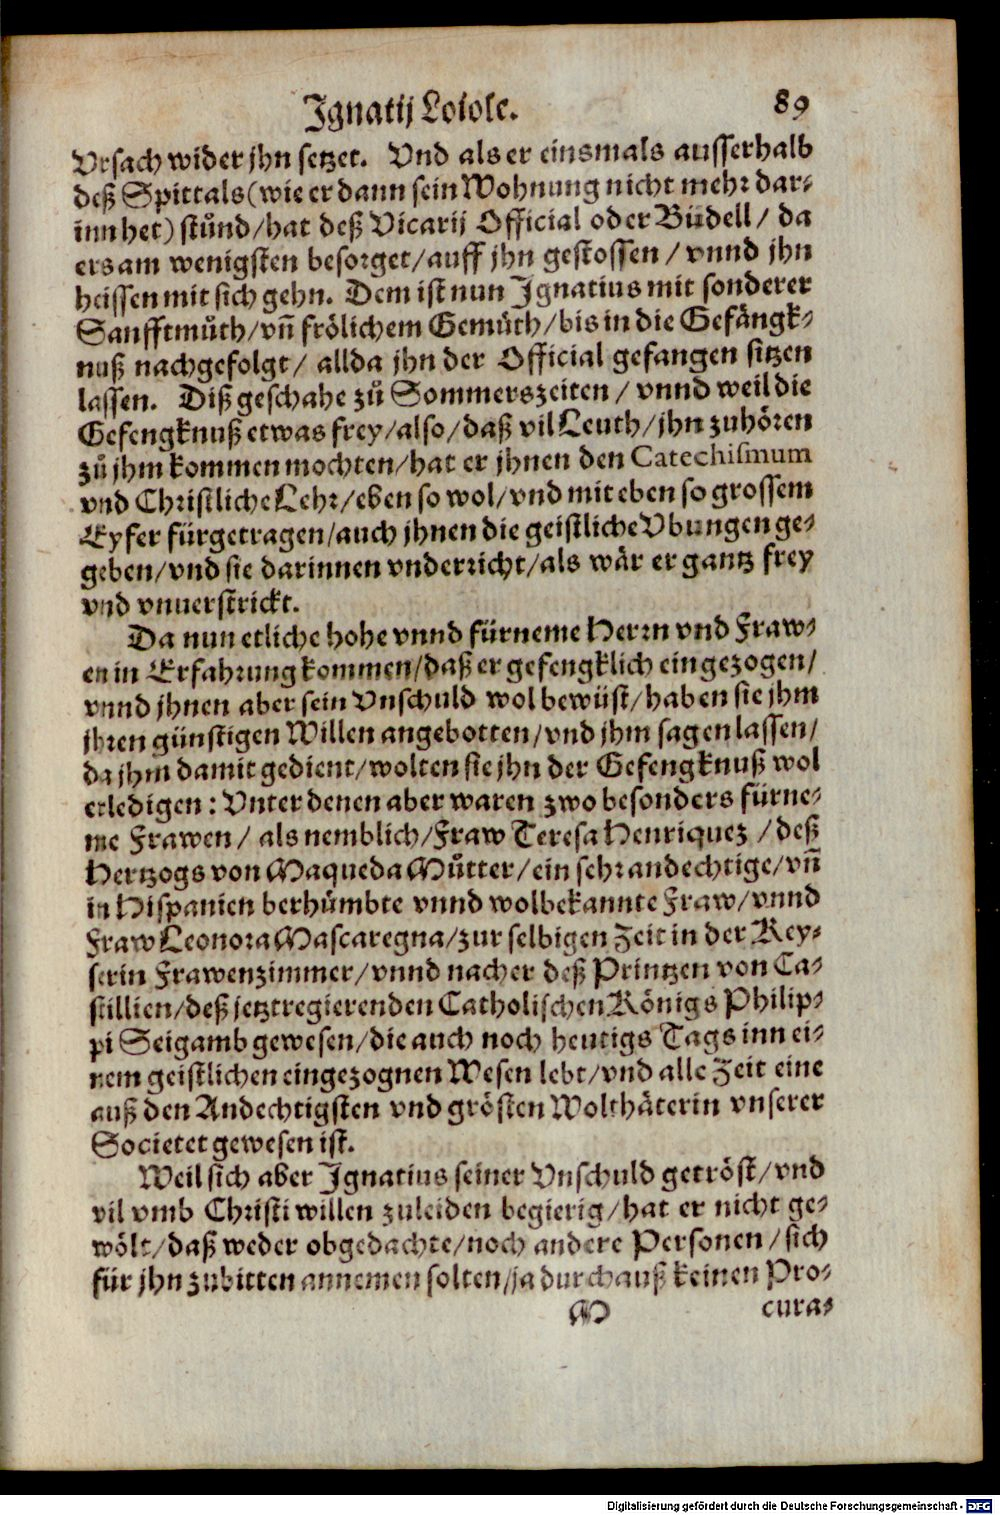 Ignatij Loiole. 89
Vrsach wider jhn setzet. Vnd als er einsmals ausserhalb
deß Spittals (wie er dann sein Wohnung nicht mehr dar-
inn het) stůnd / hat deß Vicarij Official oder Büdell / da
ers am wenigsten besorget / auff jhn gestossen / vnnd jhn
heissen mit sich gehn. Dem ist nun Ignatius mit sonderer
Sanfftmůth / vñ frölichem Gemůth / bis in die Gefängk-
nuß nachgefolgt / allda jhn der Official gefangen sitzen
lassen. Diß geschahe zů Sommerszeiten / vnnd weil die
Gefengknuß etwas frey / also / daß vil Leuth / jhn zuhören
zů jhm kommen mochten / hat er jhnen den Catechismum
vnd Christliche Lehr / eben so wol / vnd mit eben so grossem
Eyfer fürgetragen / auch jhnen die geistliche Vbungen ge-
geben / vnd sie darinnen vnderricht / als wär er gantz frey
vnd vnuerstrickt.
Da nun etliche hohe vnnd fürneme Herrn vnd Fraw-
en in Erfahrung kommen / daß er gefengklich eingezogen /
vnnd jhnen aber sein Vnschuld wol bewüst / haben sie jhm
jhren günstigen Willen angebotten / vnd jhm sagen lassen /
da jhm damit gedient / wolten sie jhn der Gefengknuß wol
erledigen : Vnter denen aber waren zwo besonders fürne-
me Frawen / als nemblich / Fraw Teresa Henriquez / deß
Hertzogs von Maqueda Můtter / ein sehr andechtige / vñ
in Hispanien berhůmbte vnnd wolbekannte Fraw / vnnd
Fraw Leonora Mascaregna / zur selbigen Zeit in der Key-
serin Frawenzimmer / vnnd nacher deß Printzen von Ca-
stillien / deß jetztregierenden Catholischen Königs Philip-
pi Seigamb gewesen / die auch noch heutigs Tags inn ei-
nem geistlichen eingezognen Wesen lebt / vnd alle Zeit eine
auß den Andechtigsten vnd grösten Wolthäterin vnserer
Societet gewesen ist.
Weil sich aber Ignatius seiner Vnschuld getröst / vnd
vil vmb Christi willen zuleiden begierig / hat er nicht ge-
wölt / daß weder obgedachte / noch andere Personen / sich
für jhn zubitten annemen solten / ja durchauß keinen Pro-
M cura-
Digitalisierung gefördert durch die Deutsche Forschungsgemeinschaft - DFG